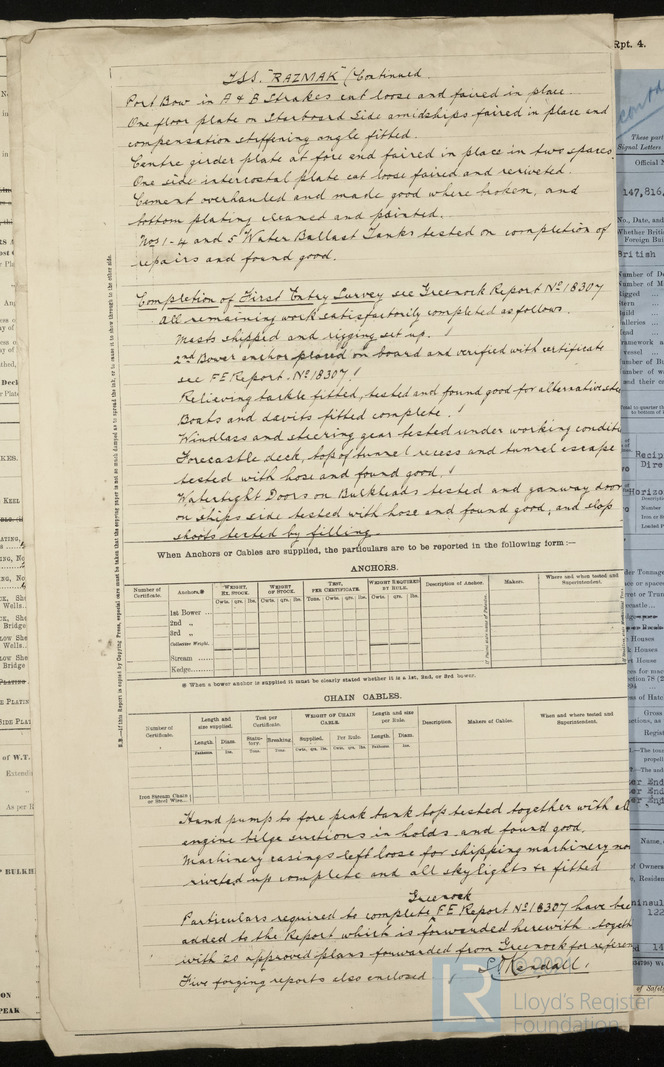 T.S.S. "RAZMAK" (Continued.
Port Bow in A & B Strakes cut loose and faired in place.
One floor plate on Starboard Side amidships faired in place and
compensation stiffening angle fitted.
Centre girder plate at fore end faired in place in two spaces.
One side intercostal plate cut loose faired and reriveted.
Cement overhauled and made good where broken, and
bottom plating cleaned and painted.
Nos 1-4 and 5 Water Ballast Tanks tested on completion of
repairs and found good.
Completion of First Entry Survey see Greenock Report No 18307
All remaining work satisfactorily completed as follows.
Masts shipped and rigging set up.
2nd Bower anchor placed on board and verified with certificate
see FE Report. No 18307.
Relieving tackle fitted, tested and found good for alternative
Boats and davits fitted complete.
Windlass and steering gear tested under working
Forecastle deck, top of tunnel recess and tunnel escape
tested with hose and found good.
Watertight Doors on Bulkheads tested and ganway door
on ships side tested with hose and found good, and slop
shoots tested by filling.
When Anchors or Cables are supplied, the particulars are to be reported in the following form :—
ANCHORS.
Number of Certificate. Anchors.* WEIGHT, EX. STOCK. WEIGHT OF STOCK. TEST, PER CERTIFICATE. WEIGHT REQUIRED BY RULE. Description of Anchor. Makers. Where and when tested and Superintendent.
Cwts. qrs. lbs. Cwts. qrs. lbs. Tons. Cwts. qrs. lbs. Cwts. qrs. lbs.
1st Bower ...
2nd „
3rd „
Collective Weight.
Stream ......
Kedge........
* When a bower anchor is supplied it must be clearly stated whether it is a 1st, 2nd, or 3rd bower.
CHAIN CABLES.
Number of Certificate. Length and size supplied. Test per Certificate. WEIGHT OF CHAIN CABLE. Length and size per Rule. Description. Makers of Cables. Where and when tested and Superintendent.
Length. Diam. Statutory. Breaking. Supplied. Per Rule. Length. Diam.
Fathoms. Ins. Tons. Tons. Cwts. qrs. lbs. Cwts. qrs. lbs. Fathoms. Ins.
Iron Stream Chain or Steel Wire...
Hand pump to fore peak tank top tested together with all
engine bilge suctions in holds and found good.
Machinery casings left loose for shipping machinery now
riveted up complete and all skylights &c fitted
Greenock
Particulars required to complete FE Report No 18307 have been
added to the Report which is forwarded herewith
with 20 approved plans forwarded from Greenock for
Five forging reports also enclosed
Kendall.
© 2021
LR
Lloyd's Register
Foundation
Rpt. 4.
These part
Signal Letters
Official N
147,816,
No., Date, and
Whether Briti
Foreign Bui
British
Recip
Dire
Horizo
Gross
Name,
of Owners
122
of Safety
KEEL
of W.T.
As per R
BULKH
PEAK